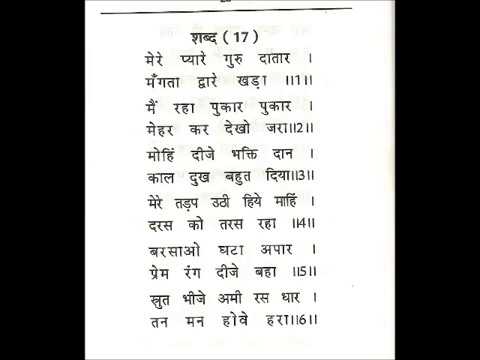 शब्द ( 17 )
मेरे प्यारे गुरु दातार ।
मँगता द्वारे खड़ा ॥1॥
मैं रहा पुकार पुकार ।
मेहर कर देखो जरा॥2॥
मोहिं दीजे भक्ति दान ।
काल दुख बहुत दिया॥3॥
मेरे तड़प उठी हिये माहिं ।
दरस को तरस रहा ॥4॥
बरसाओ घटा अपार ।
प्रेम रंग दीजे बहा ॥5॥
स्रुत भीजे अमी रस धार ।
तन मन होवे हरा॥6॥